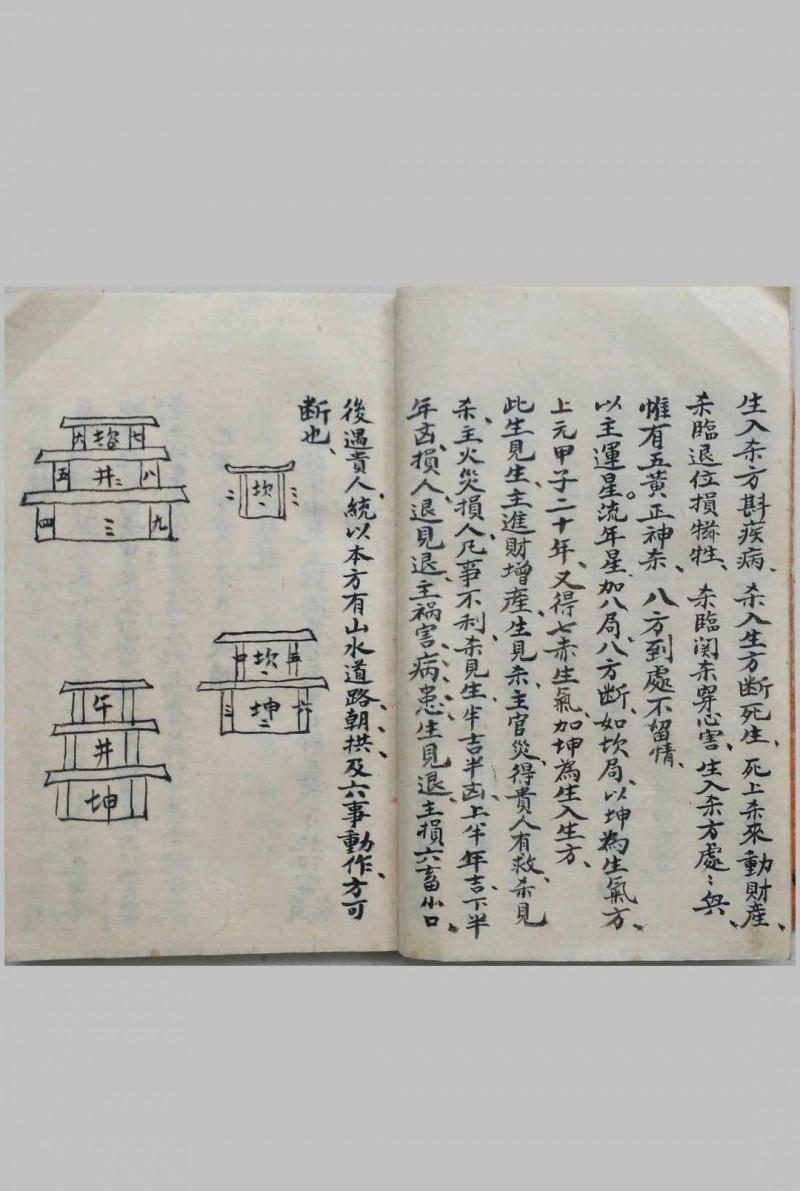 生入杀方斟疾病、杀入生方断死生、死上杀來動財產、
杀臨退位損犧牲、杀臨関杀穿心害、生入杀方處〻興、
惟有五黃正神杀、八方到處不留情、
以主運星。流年星加八局、八方断、如坎局、以坤為生氣方、
上元甲子二十年、又得七赤生氣加坤為生入生方、
此生見生、主進財增産、生見杀、主官災、得貴人有救、杀見
杀、主火災損人、凡事不利、杀見生、半吉半凶、上半年吉、下半
年凶、損人、退見退、主禍害、病患、生見退、主損六畜小口、
後遇貴人、統以本方有山水道路、朝拱、及六事動作、方可
断也、
坎
一
二
三
坎
一
五
坤
二
三
六
六
七
五
井
二
八
四
三
九
午
井
坤